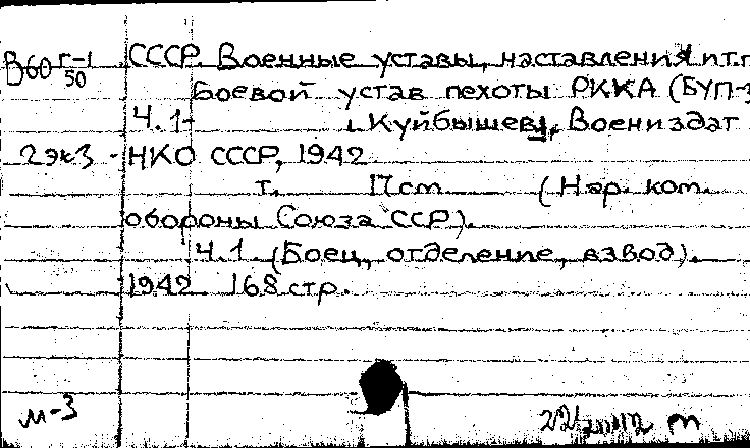 В60 г-1 СССР. Военные уставы, наставления и т.п
50 Боевой устав пехоты РККА (БУП-
Ч. 1- Куйбышев, Воениздат
2 экз - НКО СССР, 1942
т. Пст (Нар. ком.
обороны Союза ССР).
Ч. 1. (Боец, отделение, взвод).
1942 168 стр.
м-3